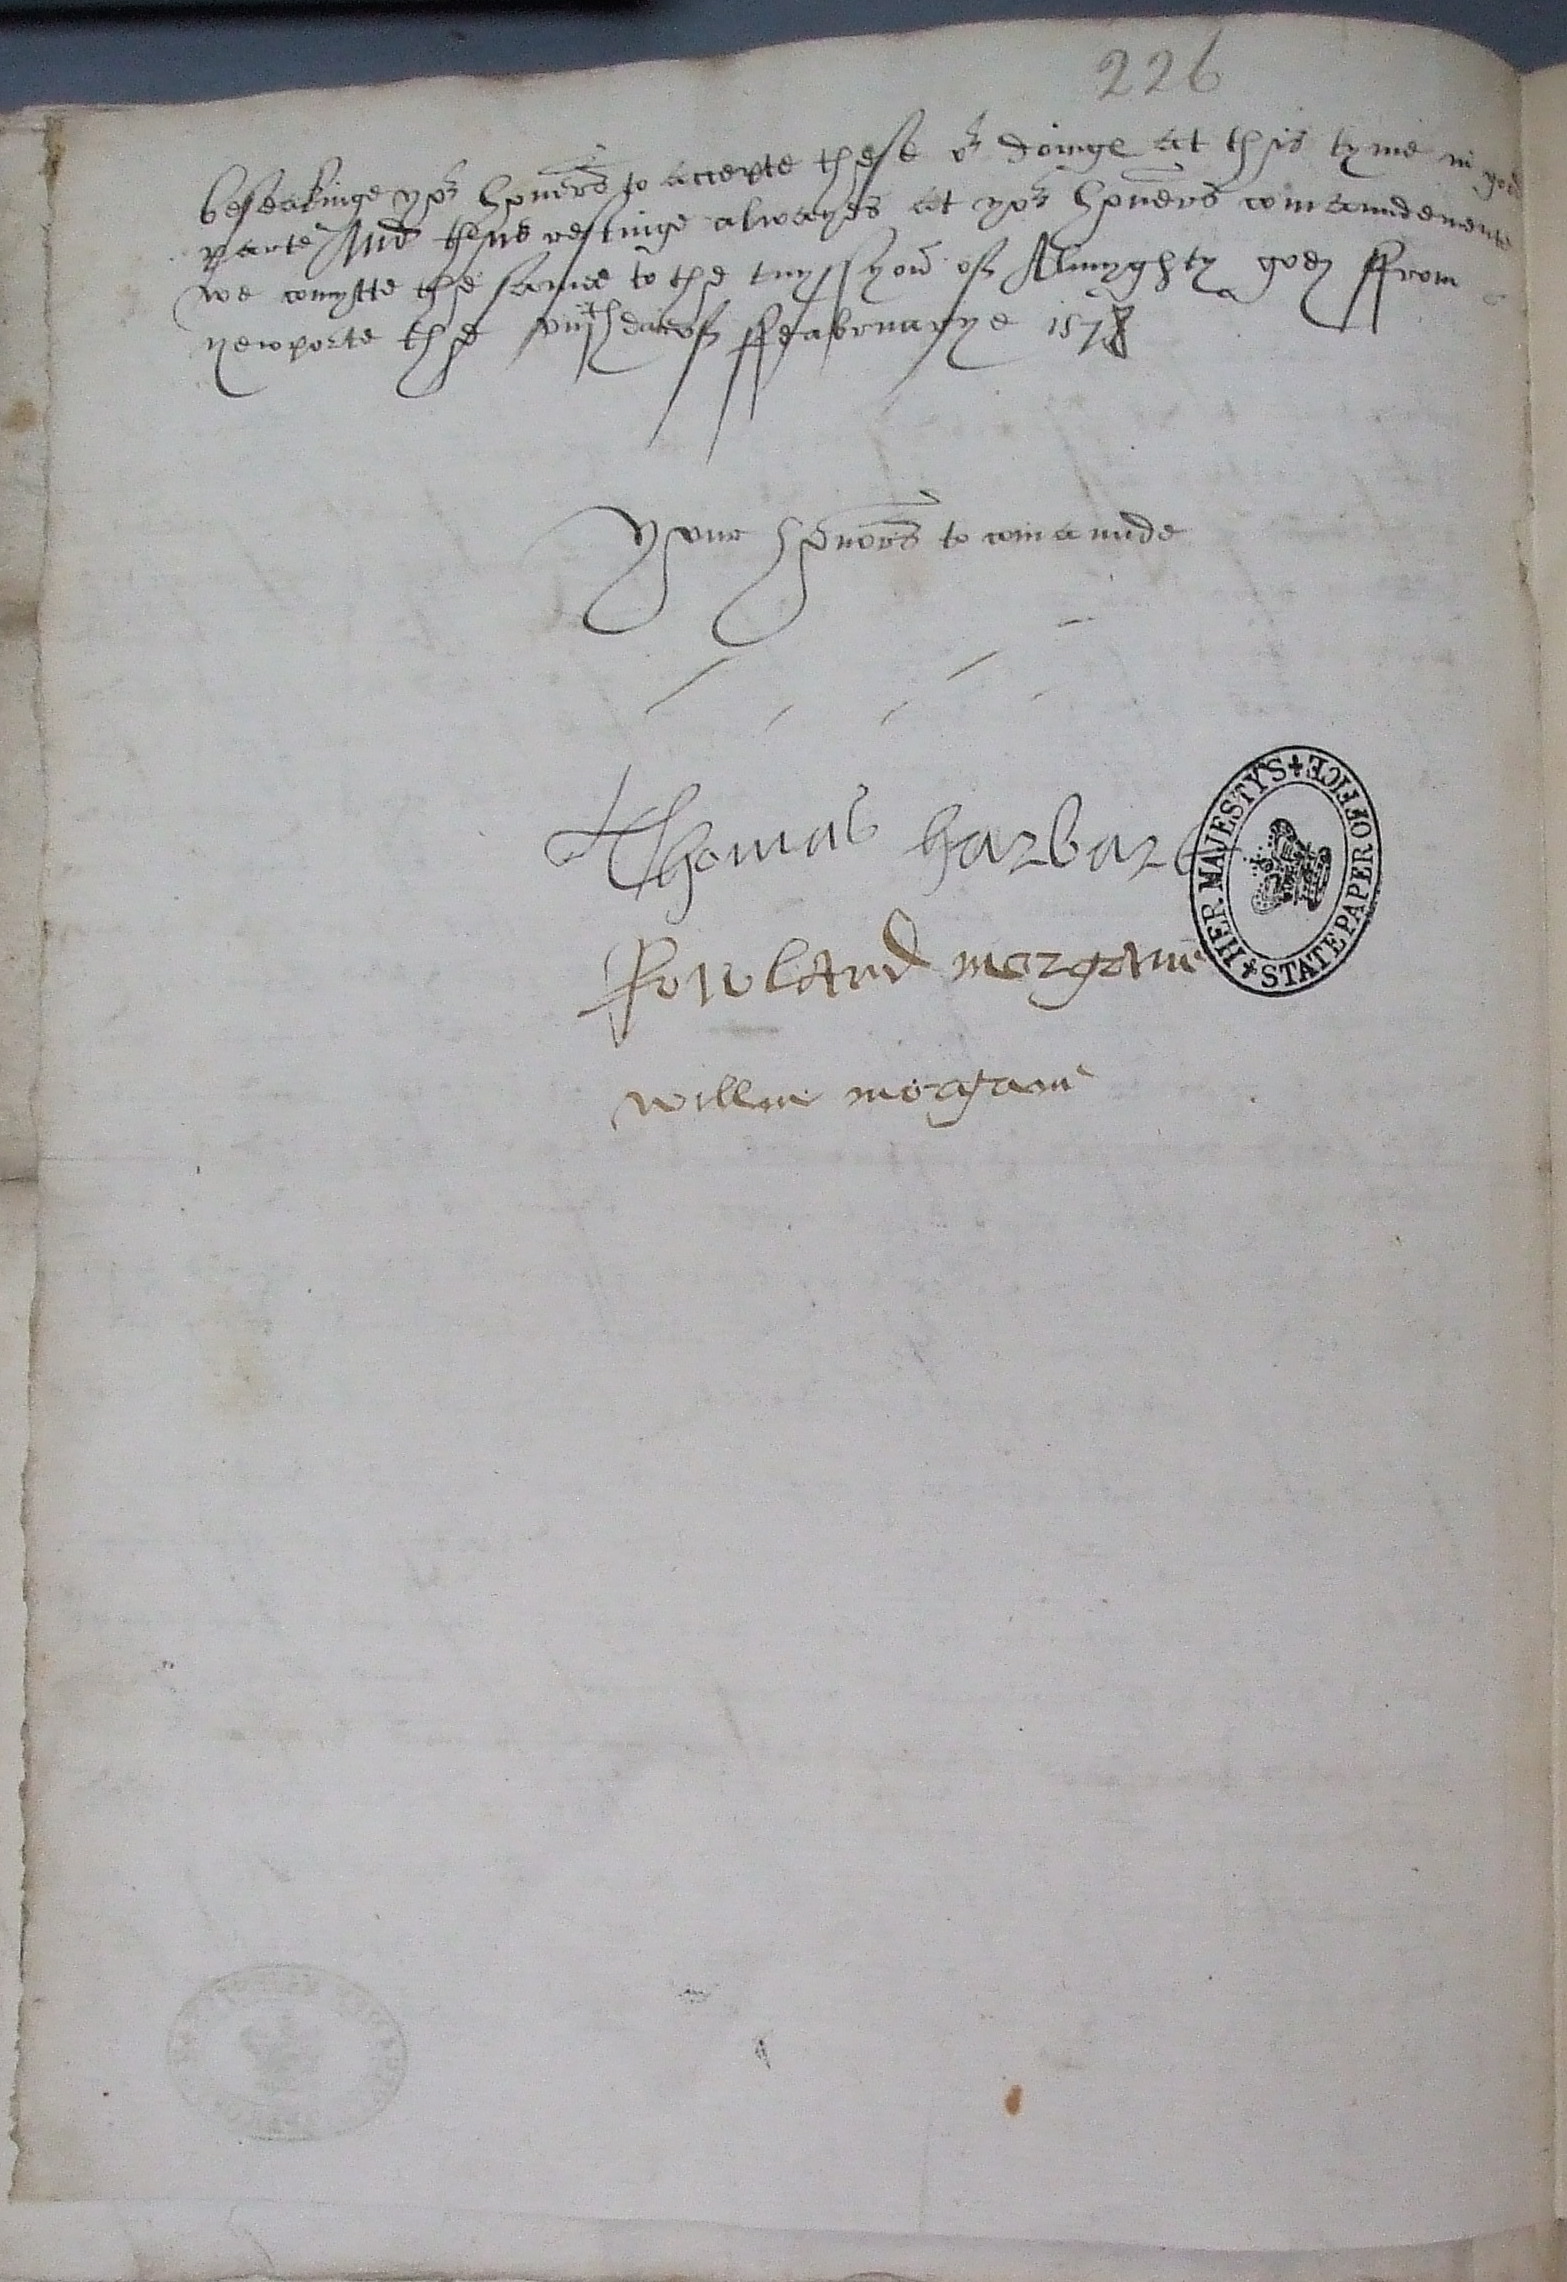 226
beseakinge yor honors to accepte these or doinge at this tyme in good
parte And thus restinge alwayes at yor honers comaundemente
we comytte the same to the tuyssyon of Almyghty god ffrom
newporte the viijth daie of ffeabruarye 1578
Your honors to comaunde
Thomas harbart
Rowland morgane
Willm morgan
HER MAJESTY'S STATE PAPER OFFICE